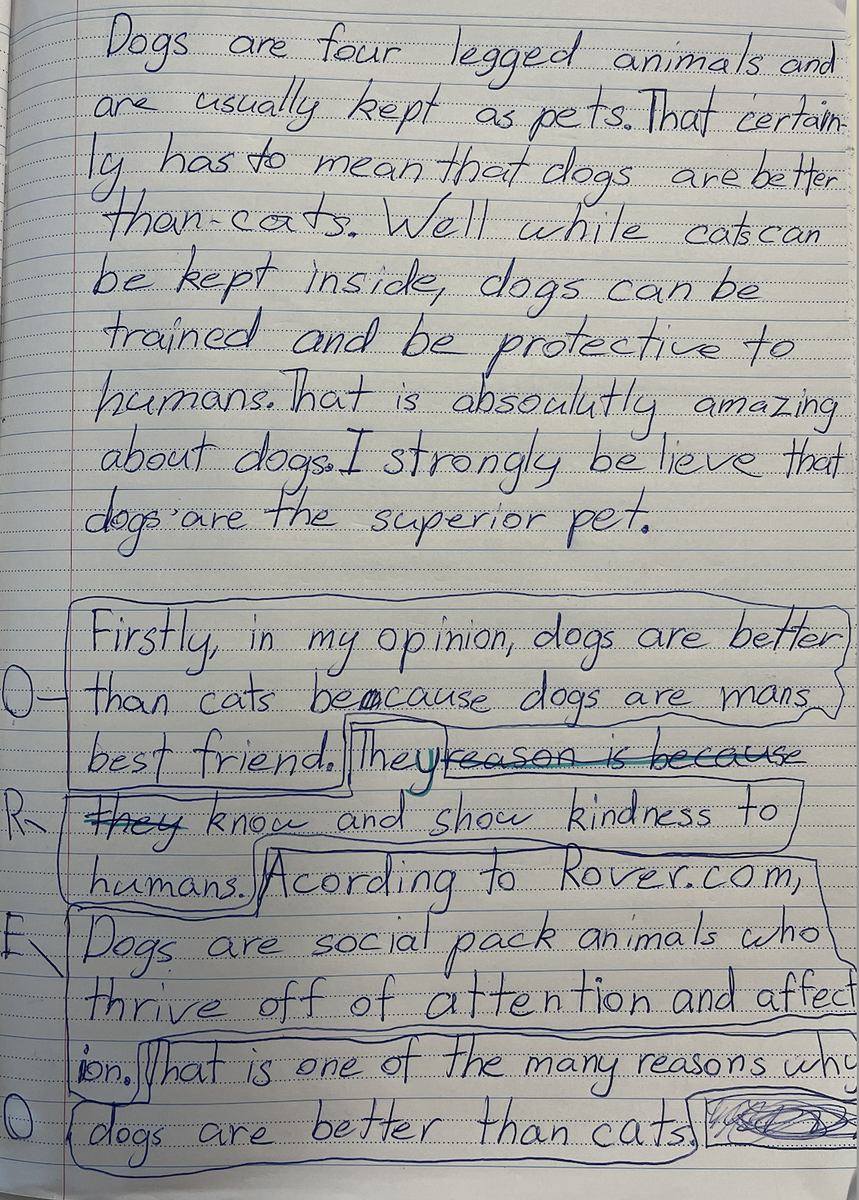 Dogs are four legged animals and
are usually kept as pets. That certain-
ly has to mean that dogs are better
than cats. Well while cats can
be kept inside, dogs can be
trained and be protective to
humans. That is absoulutly amazing
about dogs. I strongly believe that
dogs are the superior pet.
Firstly, in my opinion, dogs are better
O- than cats because dogs are mans
best friend. They reason is because
R- they know and show kindness to
humans. Acording to Rover.com,
E\ Dogs are social pack animals who
thrive off of attention and affect
ion. That is one of the many reasons why
O dogs are better than cats.